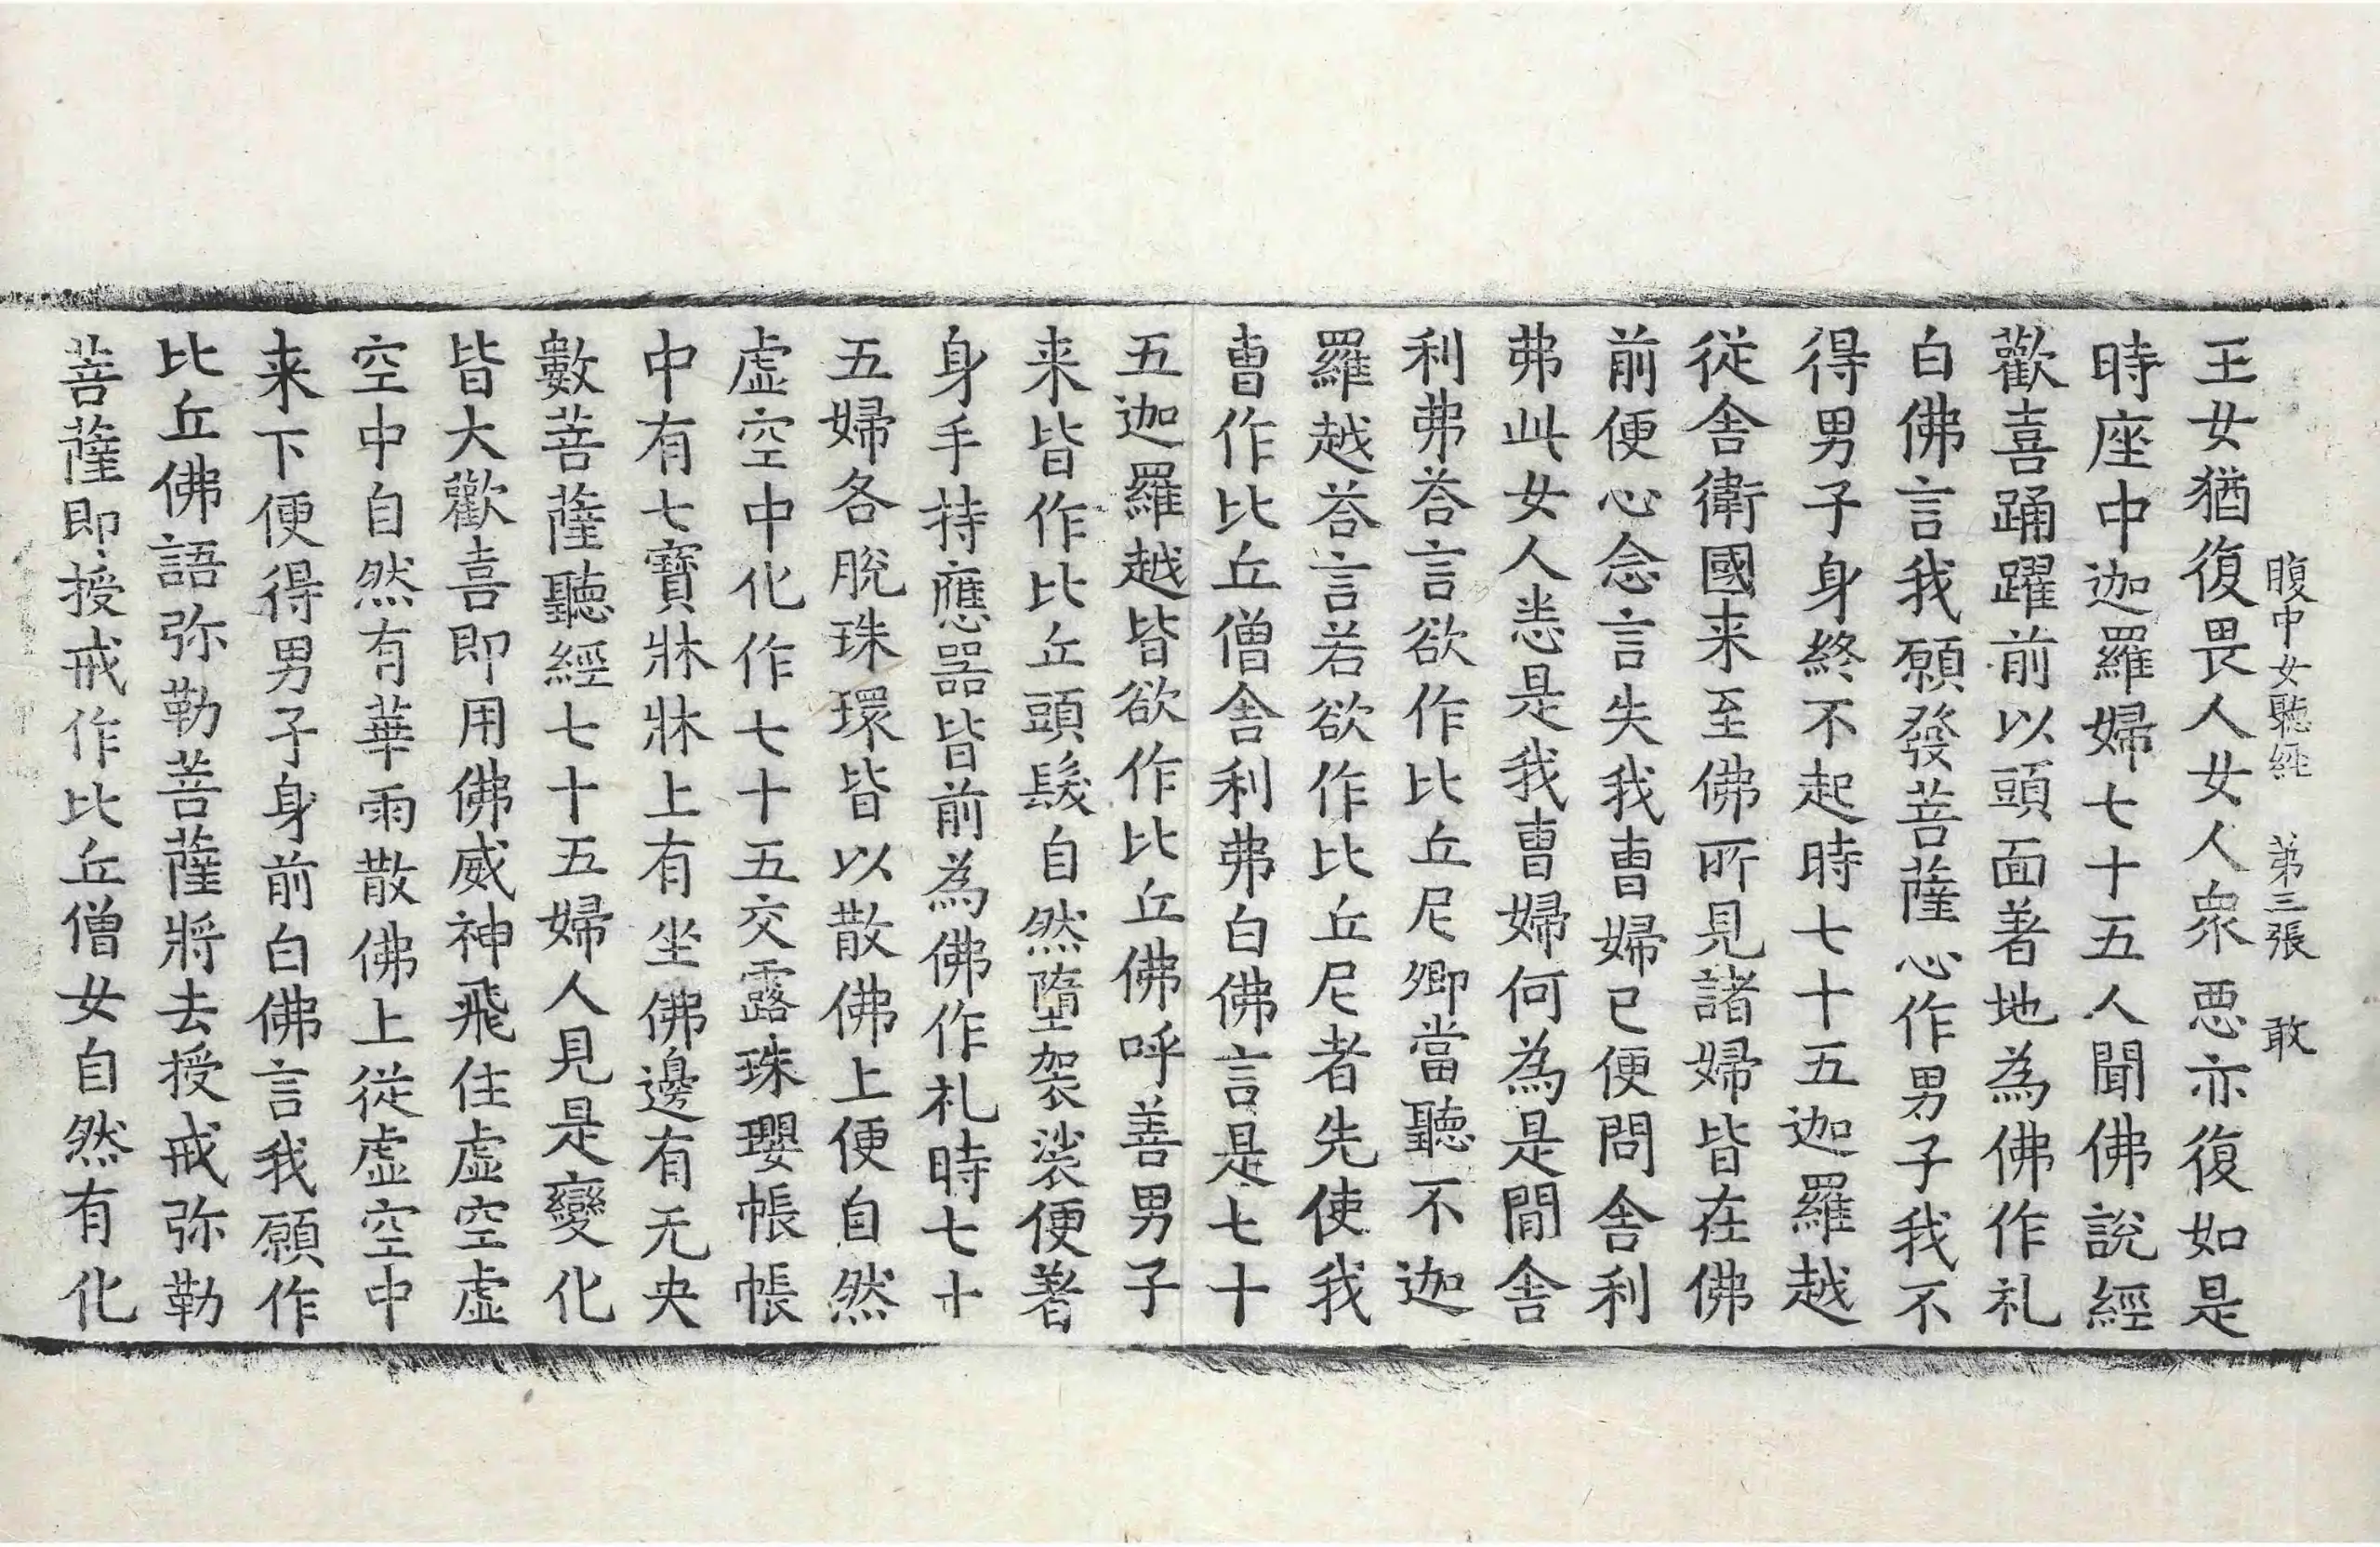 腹中女聽經 第三張 敢
王女猶復畏人女人衆惡亦復如是
時座中迦羅婦七十五人聞佛說經
歡喜踊躍前以頭面著地為佛作礼
白佛言我願發菩薩心作男子我不
得男子身終不起時七十五迦羅越
從舍衛國来至佛所見諸婦皆在佛
前便心念言失我曺婦已便問舍利
弗此女人悉是我曺婦何為是間舍
利弗荅言欲作比丘尼卿當聽不迦
羅越荅言若欲作比丘尼者先使我
曺作比丘僧舍利弗白佛言是七十
五迦羅越皆欲作比丘佛呼善男子
来皆作比丘頭髮自然墮袈裟便著
身手持應器皆前為佛作礼時七十
五婦各脫珠環皆以散佛上便自然
虛空中化作七十五交露珠瓔帳帳
中有七寶牀牀上有坐佛邊有无央
數菩薩聽經七十五婦人見是變化
皆大歡喜即用佛威神飛住虛空虛
空中自然有華雨散佛上從虛空中
来下便得男子身前白佛言我願作
比丘佛語弥勒菩薩將去授戒弥勒
菩薩即授戒作比丘僧女自然有化